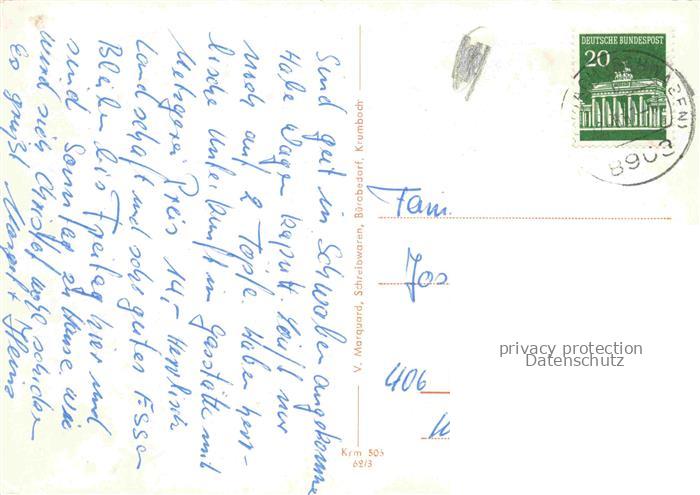 Sind gut in Schwaben angekommen
Habe Wagen kaputt. Läuft nur
noch auf 2 Töpfe. Haben herr-
liche Unterkunft in Gaststätte mit
Metzgerei Preis 14,- Herrliche
Landschaft und sehr gutes Essen
Bleiben bis Freitag hier und
sind Sonntag zu Hause
und sich Christof
Es grüßt Margrit + Heinz
V. Marquard, Schreibwaren, Bürobedarf, Krumbach
Krm 503
62/3
DEUTSCHE BUNDESPOST
20
8903
Fam.
Jos
406
privacy protection
Datenschutz